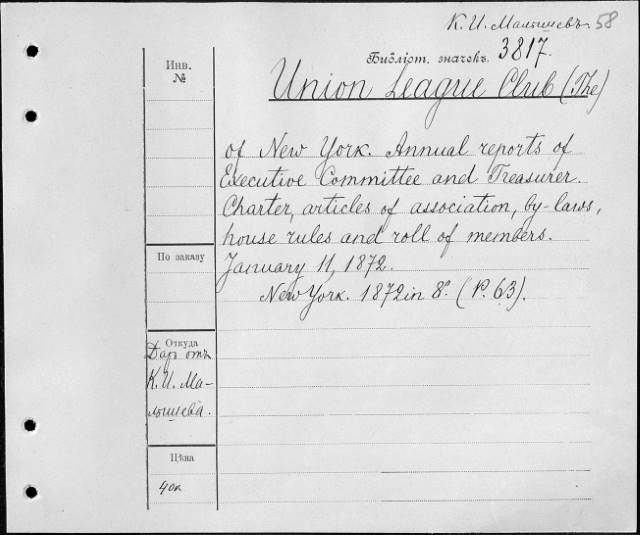 К. И. Малышевъ. 58
Библіот. значекъ. 3817.
Инв.
№
Union League Club (The)
of New York. Annual reports of
Executive Committee and Treasurer.
Charter, articles of association, by-laws,
house rules and roll of members.
По заказу
January 11, 1872.
New York. 1872 in 8º. (P. 63).
Откуда
Даръ отъ
К. И. Ма-
лышева.
Цѣна
40к